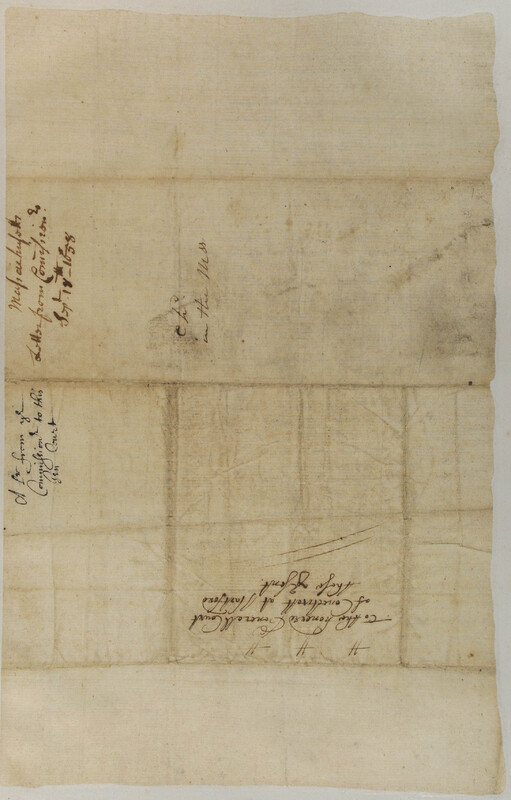 Massachusetts
Letter from Comission.rs
Sep.t 18th 1658
in the
from ye
Comissionrs to this
Gen Court
To the honored Generall Court
of Conecticott at Hartford
these p.sent